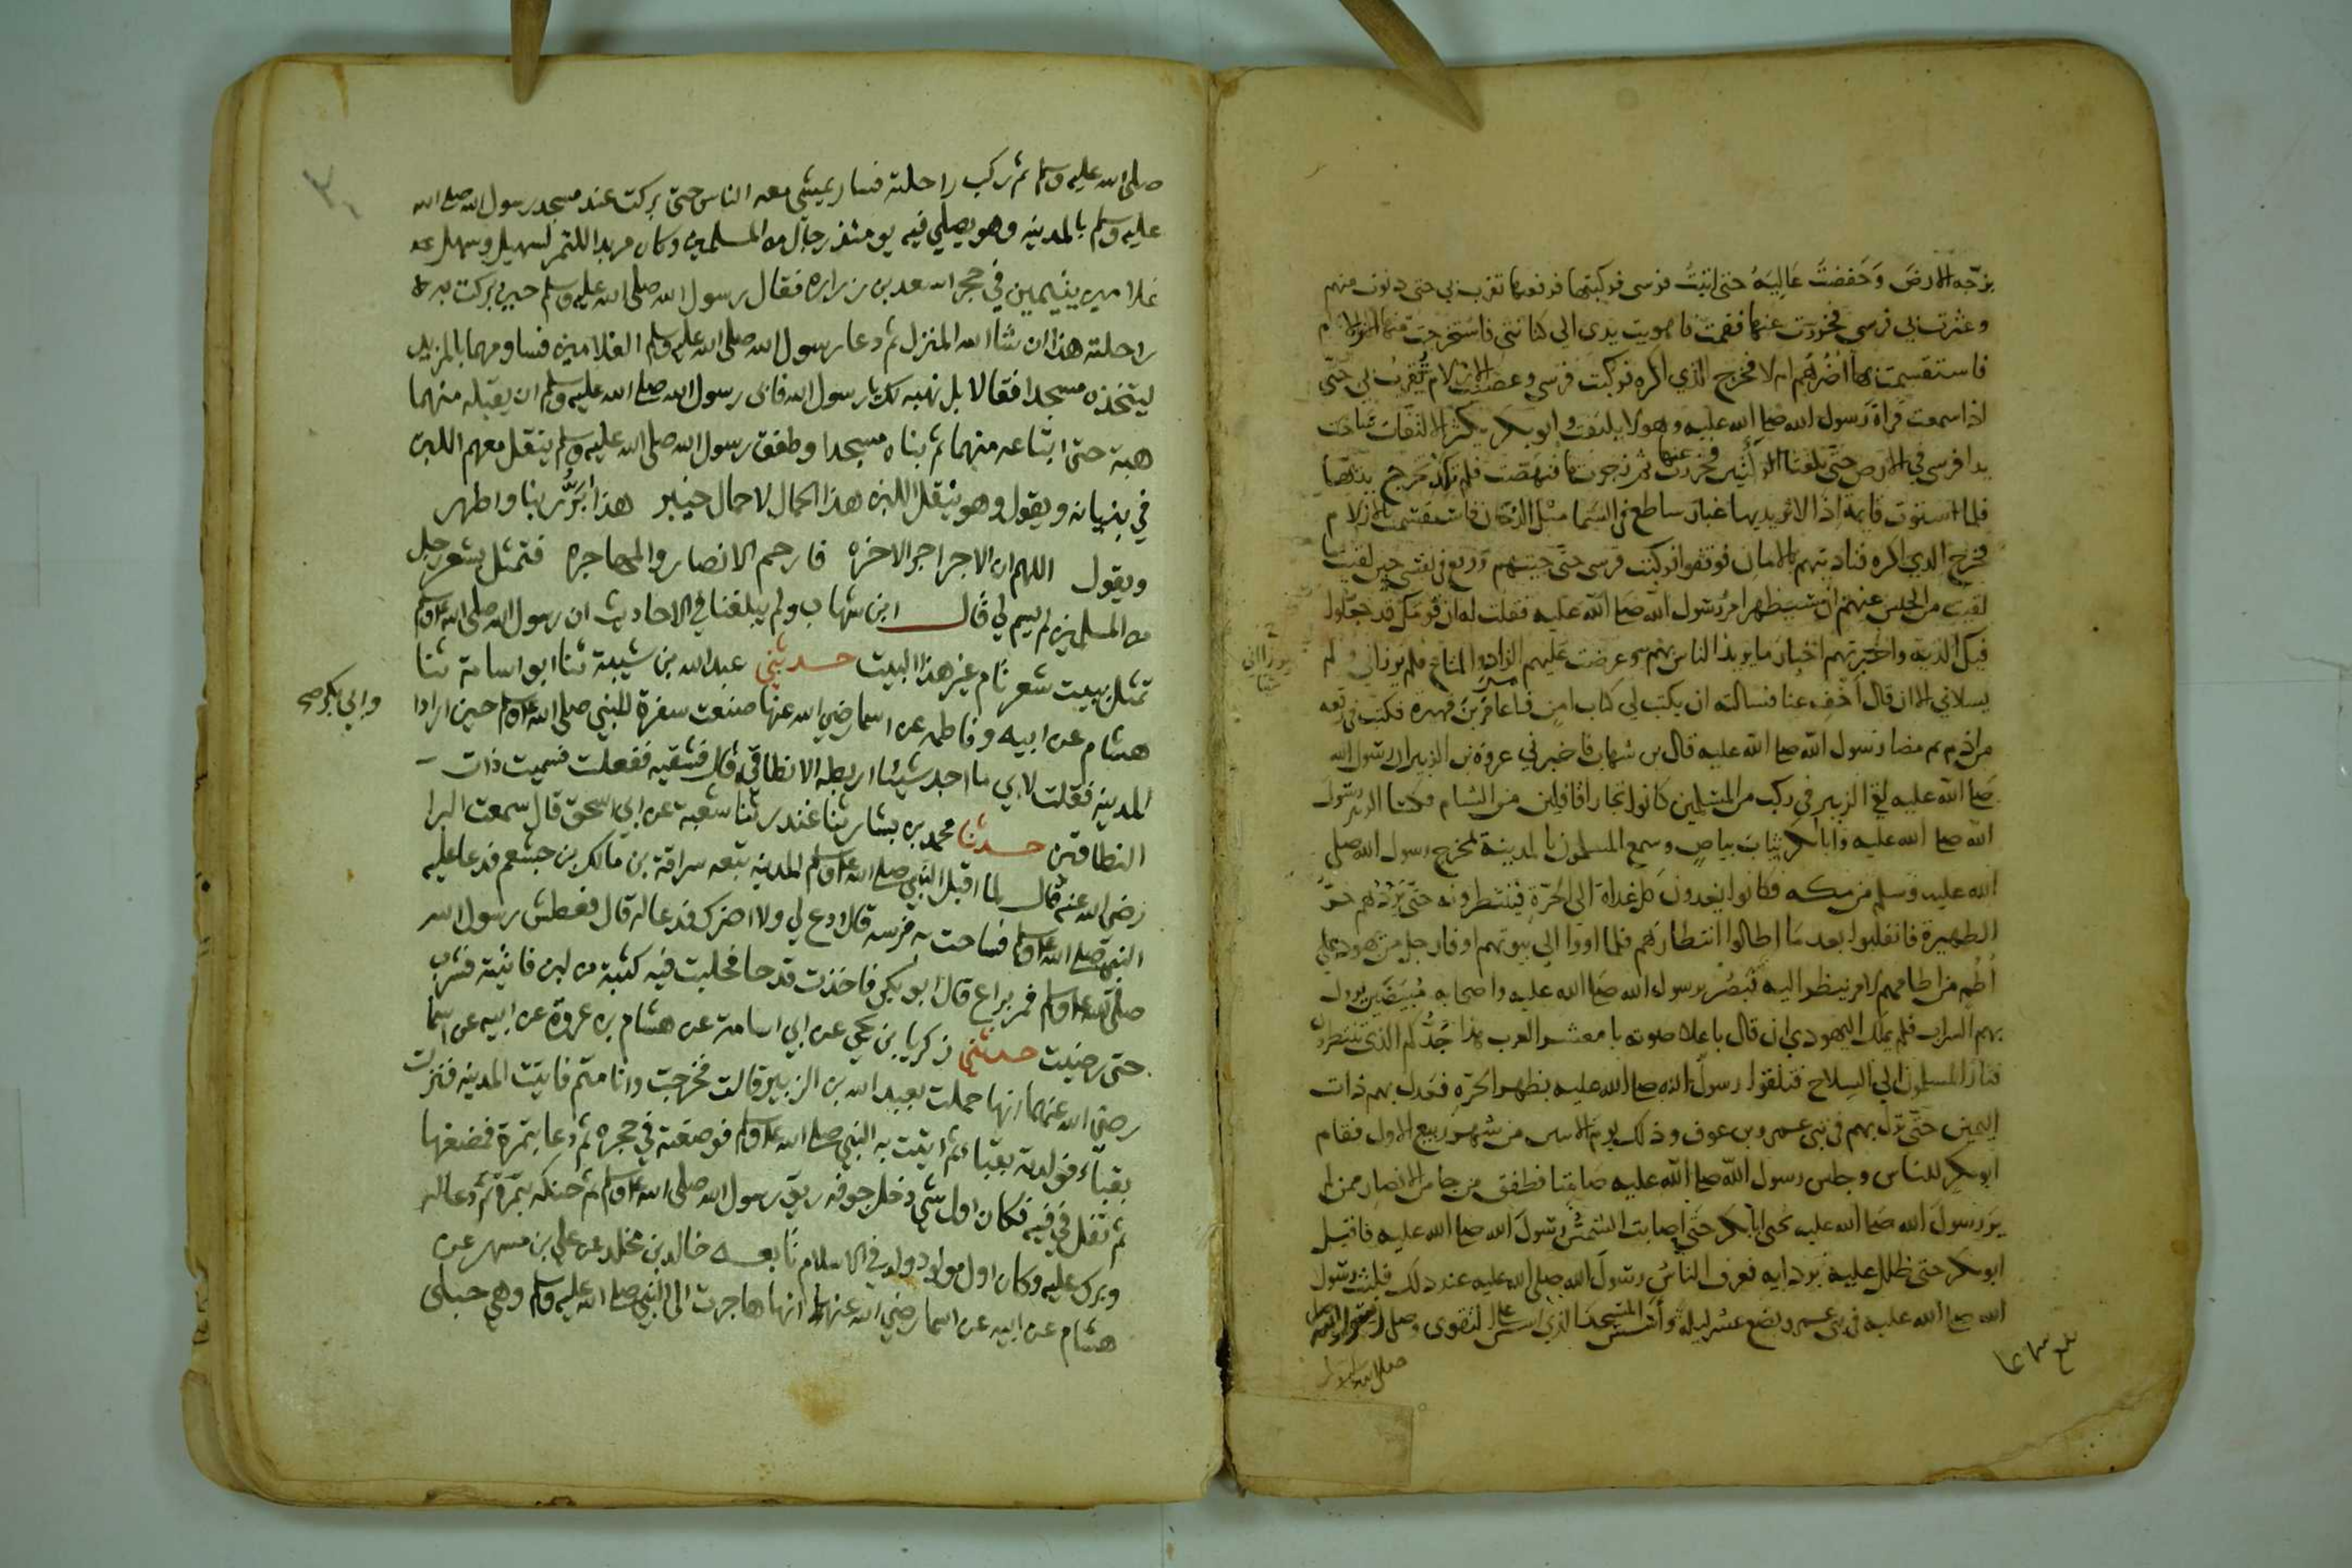 بزجه الارض وخفضت عاليه حتى اتيت فرسى فركبتها فرفعتها تقرب بي حتى دنوت منهم
وعثرت بي فرسي فخررت عنها فقمت فاهويت يدى الى كنانتي فاستخرجت منها الازلام
فاستقسمت بها اضرهم ام لا فخرج الذي اكره فركبت فرسي وعصيت الازلام تقرب بي حتى
اذا سمعت قراة رسول الله صلى الله عليه وهو لا يلتفت وابو بكر يكثر الالتفات ساخت
يدا فرسى في الارض حتى بلغتا الركبتين فخررت عنها ثم زجرتها فنهضت فلم تكد تخرج يديها
فلما استوت قايمة اذا لاثر يديها غبار ساطع في السما مثل الدخان فاستقسمت بالازلام
فخرج الذي اكره فناديتهم بالامان فوقفوا فركبت فرسى حتى جيتهم ووقع في نفسى حين لقيت
لقيت من الحبس عنهم ان سيظهر امر رسول الله صلى الله عليه فقلت له ان قومك قد جعلوا
فيك الدية واخبرتهم اخبار ما يريد الناس بهم وعرضت عليهم الزاد والمتاع فلم يرزاني ولم
يسلاني الا ان قال اخف عنا فسالته ان يكتب لي كتاب امن فامر عامر بن فهيرة فكتب في رقعه
من ادم ثم مضا رسول الله صلى الله عليه قال بن شهاب فاخبرني عروة بن الزبير ان رسول الله
صلى الله عليه لقي الزبير في ركب من المسلمين كانوا تجارا قافلين من الشام فكسا الزبير رسول
الله صلى الله عليه وابا بكر ثياب بياض وسمع المسلمون بالمدينة بمخرج رسول الله صلى
الله عليه وسلم من مكه فكانوا يغدون كل غداة الى الحرة فينتظرونه حتى يردهم حر
الظهيرة فانقلبوا بعد ما اطالوا انتظارهم فلما اووا الى بيوتهم اوفا رجل من يهود على
اطم من اطامهم لامر ينظر اليه فبصر برسول الله صلى الله عليه واصحابه مبيضين يزول
بهم السراب فلم يملك اليهودي ان قال باعلا صوته يا معشر العرب هذا جدكم الذي تنتظرون
فثار المسلمون الى السلاح فتلقوا رسول الله صلى الله عليه بظهر الحرة فعدل بهم ذات
اليمين حتى نزل بهم في بنى عمرو بن عوف وذلك يوم الاثنين من شهر ربيع الاول فقام
ابو بكر للناس وجلس رسول الله صلى الله عليه صامتا فطفق من جا من الانصار ممن لم
ير رسول الله صلى الله عليه يحيى ابا بكر حتى اصابت الشمس رسول الله صلى الله عليه فاقبل
ابو بكر حتى ظلل عليه بردايه فعرف الناس رسول الله صلى الله عليه عند ذلك فلبث رسول
الله صلى الله عليه في بنى عمرو بضع عشر ليلة واسس المسجد الذي اسس على التقوى وصلى فيه رسول الله
صلى الله عليه
بلغ سماعا
صلى الله عليه وسلم ثم ركب راحلته فسار يمشى معه الناس حتى بركت عند مسجد رسول الله صلى الله
عليه وسلم بالمدينه وهو يصلي فيه يومئذ رجال من المسلمين وكان مربدا للتمر لسهيل وسهل
غلامين يتيمين في حجر اسعد بن زراره فقال رسول الله صلى الله عليه وسلم حين بركت به
راحلته هذا ان شا الله المنزل ثم دعا رسول الله صلى الله عليه وسلم الغلامين فساومهما بالمربد
ليتخذه مسجدا فقالا بل نهبه لك يا رسول الله فابى رسول الله صلى الله عليه وسلم ان يقبله منهما
هبة حتى ابتاعه منهما ثم بناه مسجدا وطفق رسول الله صلى الله عليه وسلم ينقل معهم اللبن
في بنيانه ويقول وهو ينقل اللبن هذا الحمال لا حمال خيبر هذا ابر ربنا واطهر
ويقول اللهم ان الاجر اجر الاخره فارحم الانصار والمهاجره فتمثل بشعر رجل
من المسلمين لم يسم لي قال ابن شهاب ولم يبلغنا في الاحاديث ان رسول الله صلى الله عليه وسلم
تمثل ببيت شعر تام غير هذا البيت حدثني عبد الله بن شيبة ثنا ابو اسامة ثنا
هشام عن ابيه وفاطمه عن اسما رضي الله عنها صنعت سفرة للنبي صلى الله عليه وسلم حين ارادا
وابي بكر صح
المدينه فقلت لابي ما اجد شيئا اربطه الا نطاقي قال فشقيه ففعلت فسميت ذات
النطاقين حدثنا محمد بن بشار ثنا غندر ثنا شعبة عن ابي اسحق قال سمعت البرا
رضي الله عنه قال لما اقبل النبي صلى الله عليه وسلم المدينه تبعه سراقة بن مالك بن جشعم فدعا عليه
النبي صلى الله عليه وسلم فساحت به فرسه قال ادع لي ولا اضرك فدعا له قال فعطش رسول الله
صلى الله عليه وسلم فمر براع قال ابو بكر فاخذت قدحا فحلبت فيه كثبة من لبن فاتيته فشرب
حتى رضيت حدثني زكريا بن يحيى عن ابي اسامة عن هشام بن عروة عن ابيه عن اسما
رضي الله عنهما انها حملت بعبد الله بن الزبير قالت فخرجت وانا متم فاتيت المدينه فنزلت
بقباء فولدته بقباء ثم اتيت به النبي صلى الله عليه وسلم فوضعته في حجره ثم دعا بتمرة فمضغها
ثم تفل في فيه فكان اول شي دخل جوفه ريق رسول الله صلى الله عليه وسلم ثم حنكه بتمرة ثم دعا له
وبرك عليه وكان اول مولود ولد في الاسلام تابعه خالد بن مخلد عن علي بن مسهر عن
هشام عن ابيه عن اسما رضي الله عنها انها هاجرت الى النبي صلى الله عليه وسلم وهي حبلى